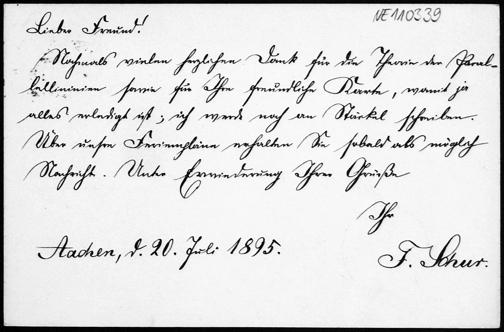 NE110339
Lieber Freund!
Nochmals vielen herzlichen Dank für die Theorie der Paral-
lellinien sowie für Ihre freundliche Karte, womit ja
alles erledigt ist; ich werde noch an Stäckel schreiben.
Über unsre Ferienpläne erhalten Sie sobald als möglich
Nachricht. Unter Erwiederung Ihrer Grüße
Ihr
F. Schur.
Aachen, d. 20. Juli 1895.